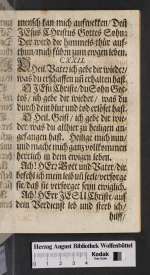 mensch kan mich auffwecken / Deñ
JEsus Christus Gottes Sohn/
Der wird die himmels-thür auff-
thun/mich führn zum ewgen leben.
CXXII.
O Heil. Vater/ich gebe dir wieder/
was du erschaffen uñ erhalten hast.
O JEsu Christe / du Sohn Got-
tes / ich gebe dir wieder / was du
durch dein blut und tod erlöset hast.
O Heil. Geist / ich gebe dir wie-
der was du allhier zu heiligen an-
gefangen hast. Heilige mich nun/
und mache mich gantz vollkommen
herrlich in dem ewigen leben.
Ach! HErr Gott mein Vater/ dir
befehl ich mein leib uñ seele/versorge
sie/daß sie versorget seyn ewiglich.
Ach! HErr JESU Christe/auf
dein Verdienst leb und sterb ich/
hilff/
Herzog August Bibliothek Wolfenbüttel
Kodak